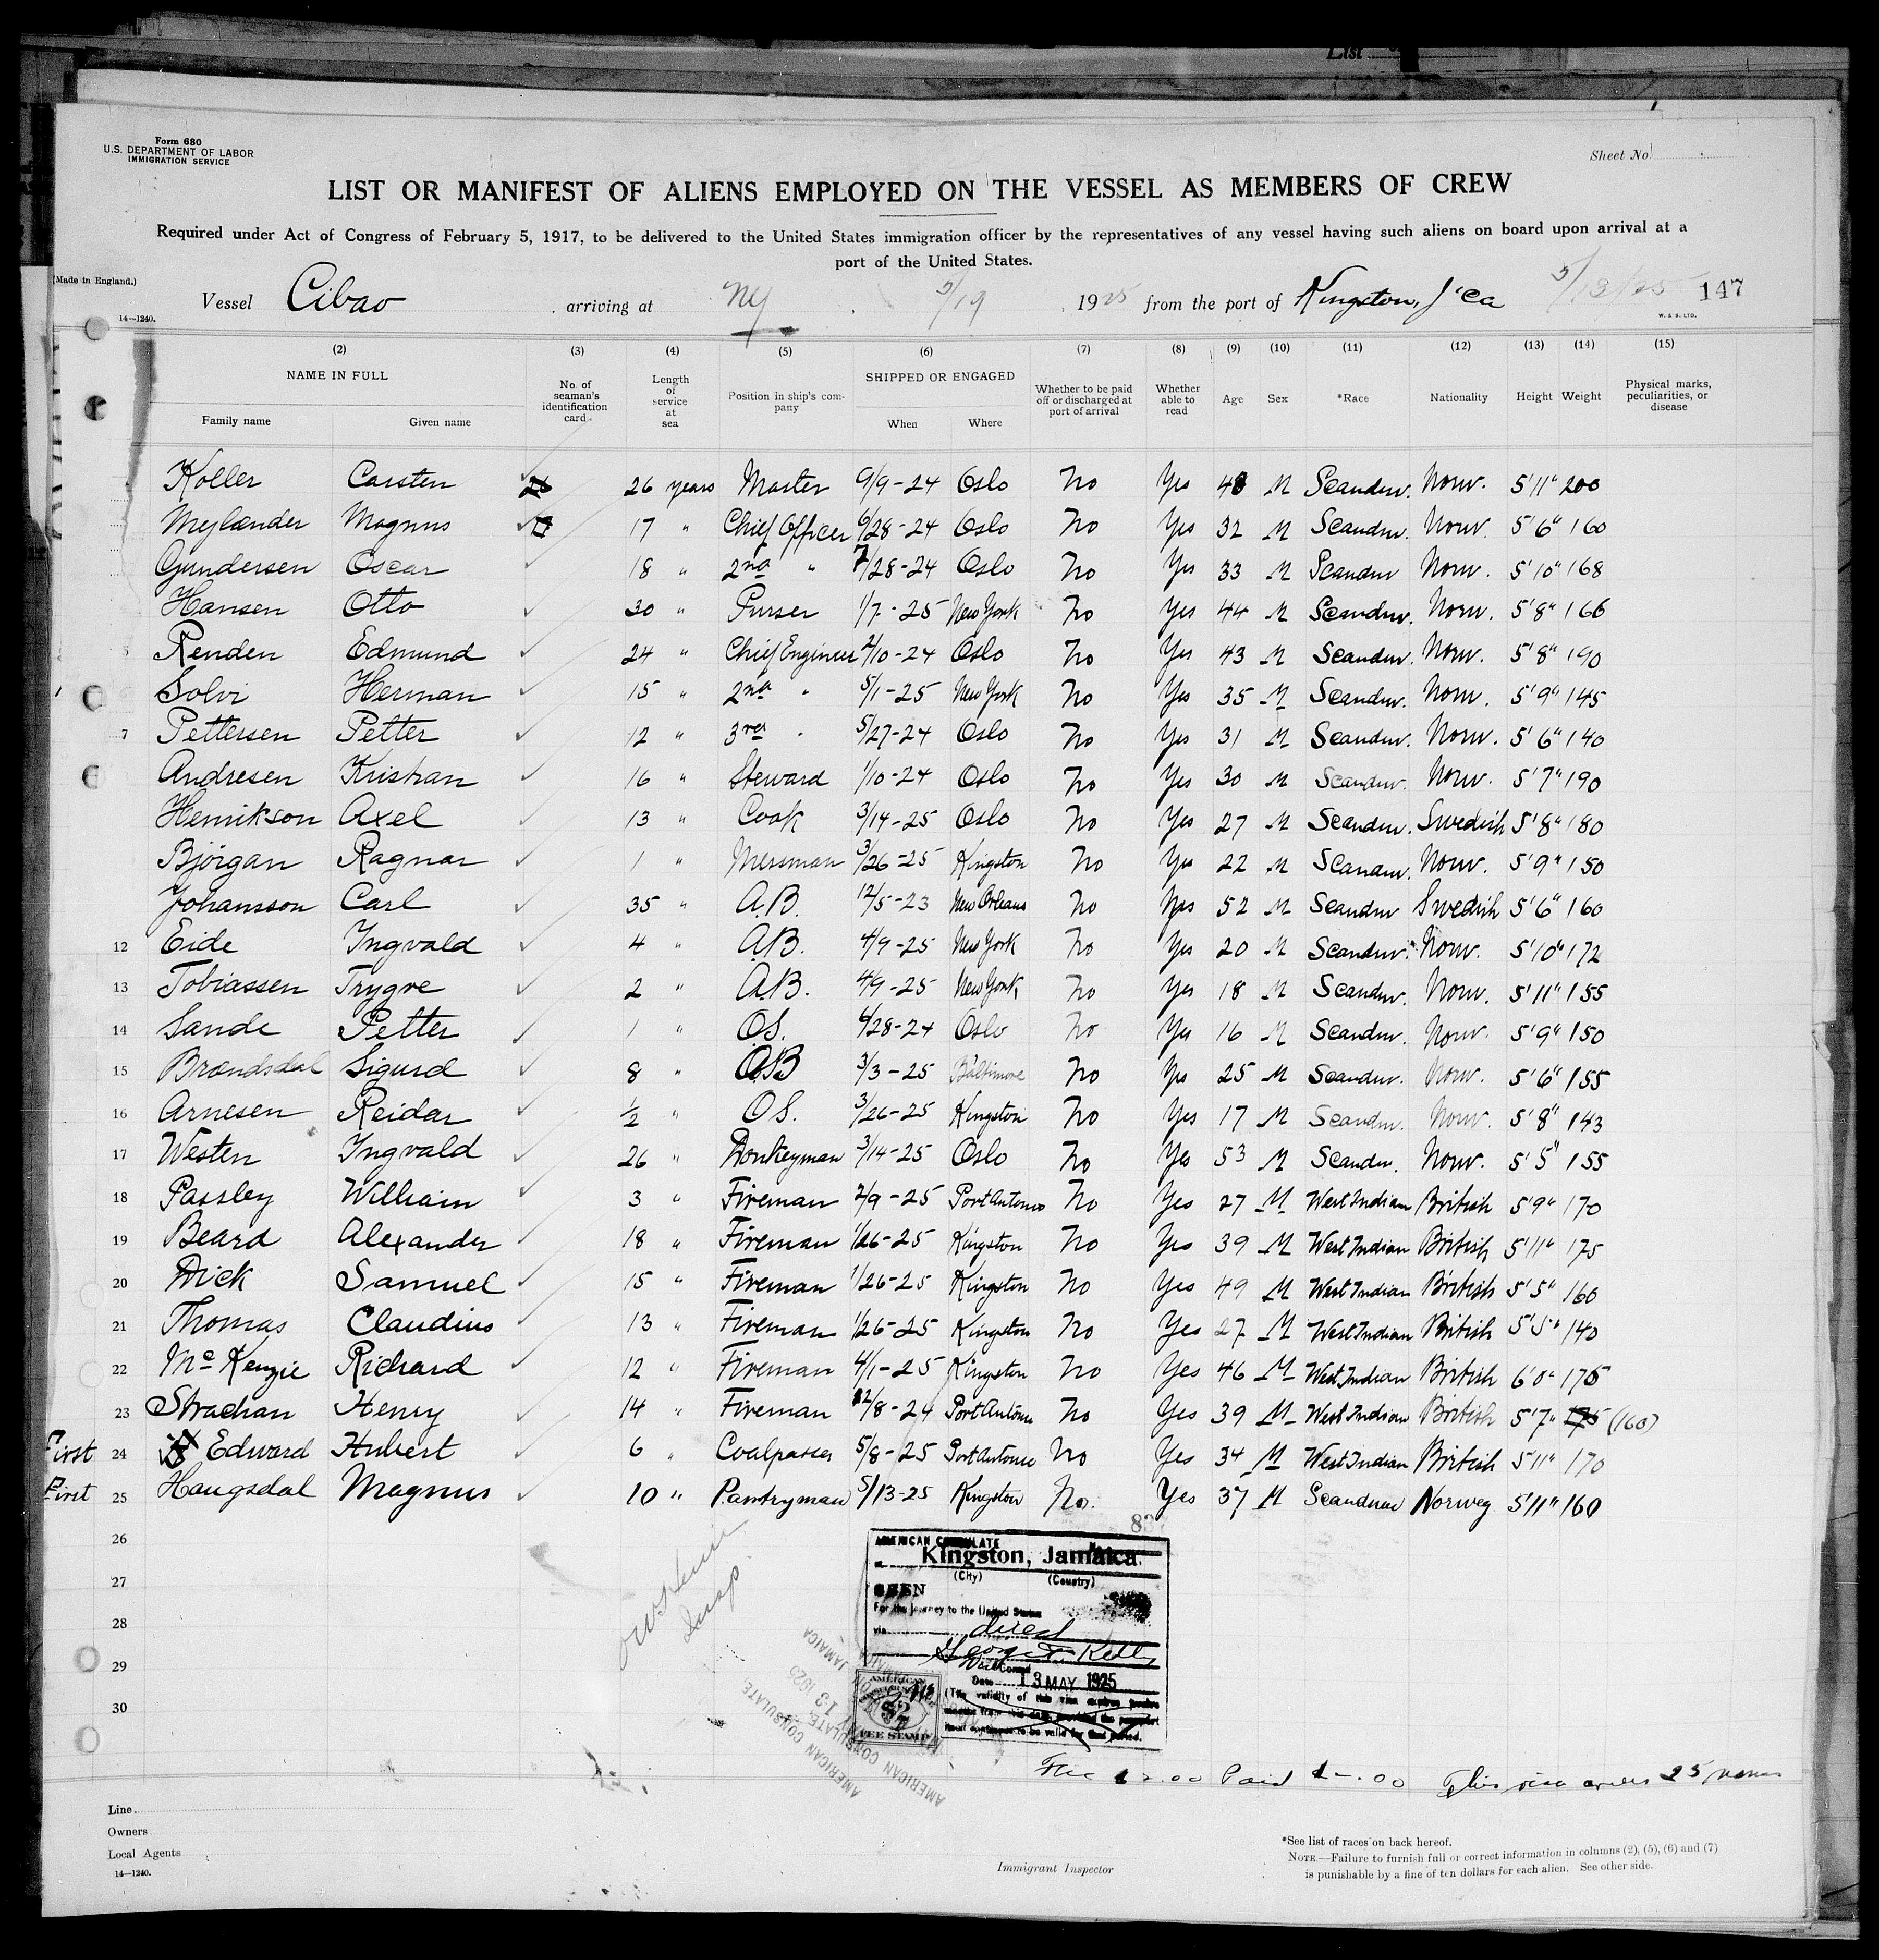 List
Form 680
U.S. DEPARTMENT OF LABOR
IMMIGRATION SERVICE
Sheet No
LIST OR MANIFEST OF ALIENS EMPLOYED ON THE VESSEL AS MEMBERS OF CREW
Required under Act of Congress of February 5, 1917, to be delivered to the United States immigration officer by the representatives of any vessel having such aliens on board upon arrival at a
port of the United States.
(Made in England.)
Vessel Cibao arriving at NY 5/19 1925 from the port of Kingston, J'ca 5/13/25 147
14—1240.
W. & S. LTD.
(2) (3) (4) (5) (6) (7) (8) (9) (10) (11) (12) (13) (14) (15)
NAME IN FULL No. of seaman's identification card Length of service at sea Position in ship's company SHIPPED OR ENGAGED Whether to be paid off or discharged at port of arrival Whether able to read Age Sex *Race Nationality Height Weight Physical marks, peculiarities, or disease
Family name Given name When Where
Koller Carsten 26 years Master 9/9-24 Oslo No Yes 48 M Scandnv. Norw. 5'11" 200
Mylænder Magnus 17 " Chief Officer 6/28-24 Oslo No Yes 32 M Scandnv. Norw. 5'6" 160
Gundersen Oscar 18 " 2nd " 7/28-24 Oslo No Yes 33 M Scandnv Norw. 5'10" 168
Hansen Otto 30 " Purser 1/7-25 New York No Yes 44 M Scandnv. Norw. 5'8" 166
Renden Edmund 24 " Chief Engineer 2/10-24 Oslo No Yes 43 M Scandnv. Norw. 5'8" 190
Solvi Herman 15 " 2nd " 5/1-25 New York No Yes 35 M Scandnv. Norw. 5'9" 145
7 Pettersen Petter 12 " 3rd " 5/27-24 Oslo No Yes 31 M Scandnv. Norw. 5'6" 140
Andresen Kristian 16 " Steward 1/10-24 Oslo No Yes 30 M Scandnv. Norw. 5'7" 190
Henrikson Axel 13 " Cook 3/14-25 Oslo No Yes 27 M Scandnv. Swedish 5'8" 180
Bjørgan Ragnar 1 " Messman 3/26-25 Kingston No Yes 22 M Scandnv. Norw. 5'9" 150
Johansson Carl 35 " A.B. 12/5-23 New Orleans No Yes 52 M Scandnv Swedish 5'6" 160
12 Eide Ingvald 4 " A.B. 4/9-25 New York No Yes 20 M Scandnv. Norw. 5'10" 172
13 Tobiassen Trygve 2 " A.B. 4/9-25 New York No Yes 18 M Scandnv. Norw. 5'11" 155
14 Sande Petter 1 " O.S. 6/28-24 Oslo No Yes 16 M Scandnv. Norw. 5'9" 150
15 Brændsdal Sigurd 8 " AB 3/3-25 Baltimore No Yes 25 M Scandnv. Norw. 5'6" 155
16 Arnesen Reidar 1/2 " O.S. 3/26-25 Kingston No Yes 17 M Scandnv. Norw. 5'8" 143
17 Westen Ingvald 26 " Donkeyman 3/14-25 Oslo No Yes 53 M Scandnv. Norw. 5'5" 155
18 Passley William 3 " Fireman 2/9-25 Port Antonio No Yes 27 M West Indian British 5'9" 170
19 Beard Alexander 18 " Fireman 1/26-25 Kingston No Yes 39 M West Indian British 5'11" 175
20 Dick Samuel 15 " Fireman 1/26-25 Kingston No Yes 49 M West Indian British 5'5" 160
21 Thomas Claudius 13 " Fireman 1/26-25 Kingston No Yes 27 M West Indian British 5'5" 140
22 McKenzie Richard 12 " Fireman 4/1-25 Kingston No Yes 46 M West Indian British 6'0" 175
23 Strachan Henry 14 " Fireman 12/8-24 Port Antonio No Yes 39 M West Indian British 5'7" 175 (160)
First 24 Edward Hubert 6 " Coalpasser 5/8-25 Port Antonio No Yes 34 M West Indian British 5'11" 170
First 25 Haugsdal Magnus 10 " Pantryman 5/13-25 Kingston No. Yes 37 M Scandnav Norweg 5'11" 160
26
27
28
29
30
Insp.
AMERICAN CONSULATE
Kingston, Jamaica.
(City) (Country)
SEEN
For the journey to the United States
via direct
George Kelly
Vice Consul
Date 13 MAY 1925
(The validity of this visa expires twelve
months from this date, provided the passport
itself continues to be valid for that period.
AMERICAN
$2
FEE STAMP
AMERICAN CONSULATE
JAMAICA
AMERICAN CONSULATE
Fee $2.00 Paid $2.00 This visa covers 25 names
Line
Owners
Local Agents
14—1240.
Immigrant Inspector
*See list of races on back hereof.
NOTE.—Failure to furnish full or correct information in columns (2), (5), (6) and (7)
is punishable by a fine of ten dollars for each alien. See other side.